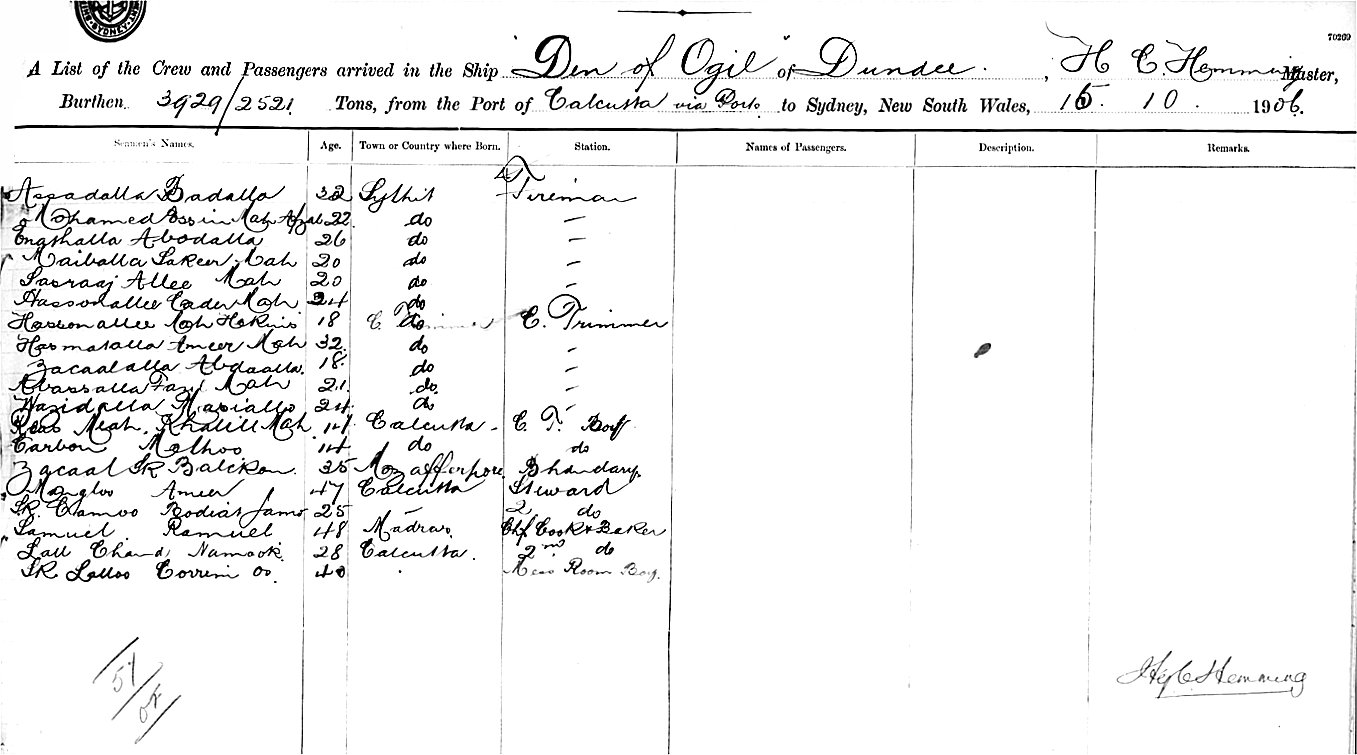 SYDNEY
70269
A List of the Crew and Passengers arrived in the Ship "Den of Ogil" of Dundee. , H C. Hemming Master,
Burthen 3929/2521 Tons, from the Port of Calcutta via Ports to Sydney, New South Wales, 15. 10. 1906.
Seamen's Names. Age. Town or Country where Born. Station. Names of Passengers. Description. Remarks.
Assadalla Badalla 32 Sylhit Fireman
Mohamed Essin Mah 22 do —
Abodalla 26 do —
Maiballa Sakeer Mah 20 do —
Sasraaj Allee Mah 20 do —
Hassonallee Cader Mah 24 do
Hassonallee Mah Hakins 18 do C. Trimmer
Hasmatalla Ameer Mah 32 do —
Zacaalalla Abdaalla 18 do —
Abassalla Fazil Mah 21 do —
Wazidalla 24 do —
Meah Khalill Mah 14 Calcutta - C. T. Boy
Carbon Malhoo 14 do do
Zacaal SK Balckon. 35 Mozafferpore Bhandary.
Mangloo Ameer 47 Calcutta Steward
SK. 25 — 2 do
Samuel Ramuel 48 Madras Chf Cook & Baker
Lall Chand Namook. 28 Calcutta. 2nd do
SK Lalloo 40 Mess Room Boy.
51
H C Hemming